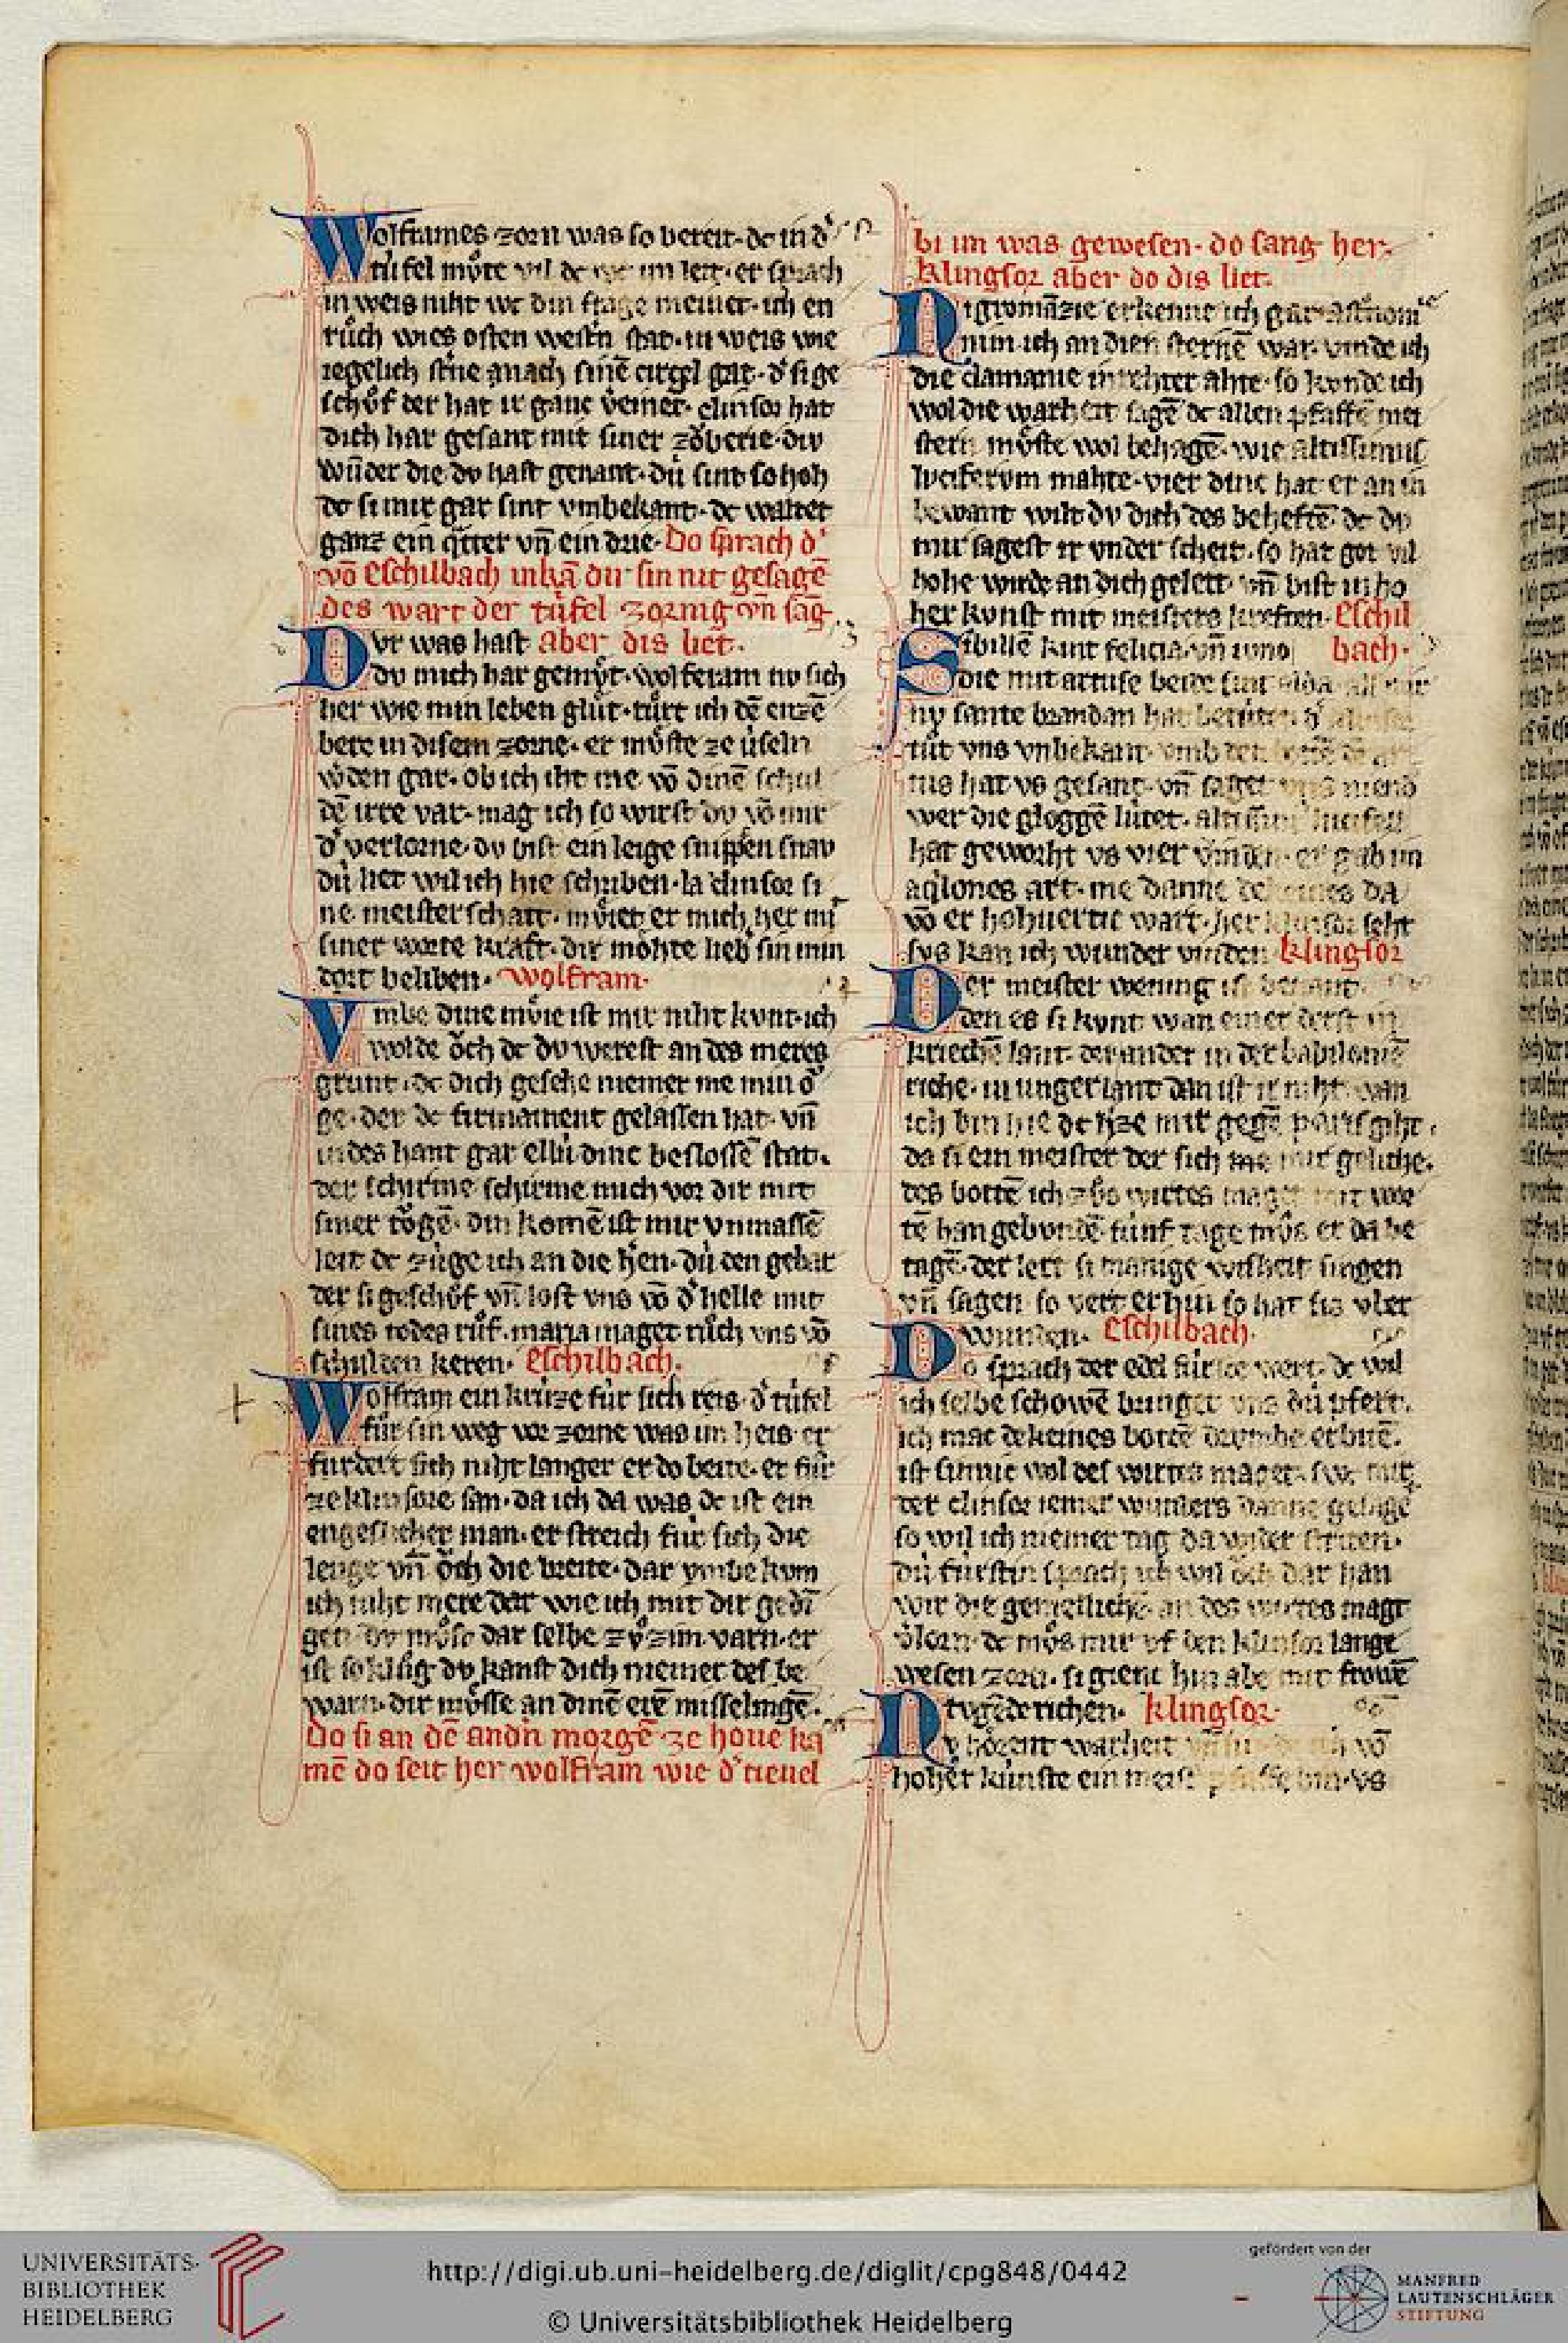 Wolframes zorn was so bereit· dc in d̾
túfel mu̍te vil dc im leit· er sprach
in weis niht wc din frage meinet· ich en
ru̍ch wies osten westn stat· in weis wie
iegelich stne gnach sinē cirgel gat· d̾ si ge
schu̍f der hat ir ganc vemet· clinsor hat
dich har gesant mit siner zo̍berie· div
wūder die dv hast genant· dú sint so hoh
dc si mir gar sint vnbekant· dc waltet
ganz ein q̍tter vn̄ ein drie· Do sprach d̾
vō Eschilbach inkā dir sin nit gesagē
des wart der túfel zornig vn̄ sāg
Dvr was hast aber dis liet·
dv mich har gemu̍t· wolferam nv sich
her wie min leben glu̍t· túrt ich dē einzē
bere in disem zorne· er mu̍ste ze úseln
w̍den gar· ob ich iht me vō dinē schul
dē irre var· mag ich so wirst dv vō mir
d̾ verlorne· dv bist ein leige snippen snav
dú liet wil ich hie schriben· la clinsor si
ne meisterschaft· mu̍iet er mich her mit
siner worte kraft· dir möhte lieb̾ sin min
dort beliben· Wolfram·
Vmbe dine mu̍ie ist mir niht kvnt· ich
wolde o̍ch dc dv werest an des meres
grunt· dc dich gesehe niemer me min o̍
ge· der dc firmament gelassen hat· vn̄
in des hant gar ellú dinc beslossē stat·
der schirme schirme mich vor dir mit
siner to̍gē· din komē ist mir vnmassē
leit dc zúge ich an die hen· dú den gebar
der si geschu̍f vn̄ lost vns vō d̾ helle mit
sines todes ru̍f· maria maget ru̍ch vns vō
schulden keren· Eschilbach·
Wolfram ein krúze fúr sich reis· d̾ túfel
fu̍r sin weg vor zorne was im heis· er
fúrdert sich niht langer er do beite· er fu̍r
ze klinsore san· da ich da was dc ist ein
engeslicher man· er streich fúr sich die
lenge vn̄ o̍ch die breite· dar vmbe kvm
ich niht mere dar wie ich mit dir gedī
gen· dv mu̍st dar selbe zv̍ zim varn· er
ist so klu̍g dv kanst dich niemer des be
warn· dir mu̍sse an dinē erē misselingē·
Do si an dē andn morgē ze houe kā
mē do seit her wolfram wie d̾ tieuel
bi im was gewesen· do sang her
Klingsor aber do dis liet·
Nigromāzie erkenne ich gar· astronomie
nim ich an dien sternē war· vinde ich
die clamanie in rehter ahte· so konde ich
wol die warheit sagē dc allen pfaffē mei
stern mu̍ste wol behagē· wie altissimus
lvcifervm mahte· vier dinc hat er an in
bewant wilt dv dich des beheftē· dc dv
mir sagest ir vnder scheit· so hat got vil
hohe wirde an dich geleit· vn̄ bist in ho
her kvnst mit meisters kreften· Eschil
Sibillē kint felicia· vn̄ iuno bach·
die mit artuse beide sint
ny sante brandan hat
tút vns vnbekant· vmb den
tus hat vs gesant· vn̄ saget vns niend̾
wer die gloggē lútet· lucifern
hat geworht vs vier winden· er gab im
aq̍lones art· me danne da
vō er hohuertic wart· her klinsor seht
svs kan ich wunder vinden· Klingsor
Der meister wening ist
den es si kvnt wan einer derst in
kriechē lant· der ander in der babilonē
riche· in ungerlant dan ist ir niht· wan
ich bin hie dc h̾ze mir gegē paris giht·
da si ein meister der sich mir geliche·
des bottē ich wirtes maget mit wor
tē han gebvndē· fúnf tage mu̍s er da be
tagē· der lert si manige wisheit singen
vn̄ sagen· so vert er hin so hat sis vber
wunden· Eschilbach·
Do sprach der edel fúrste wert· dc wil
ich selbe schowē bringet vns dú pfert·
ich mac dekeines bottē drvmbe erbitē·
ist sinnic wol des wirtes maget· swc mir
der clinsor iemer wunders danne gesagē
so wil ich niemer tag da wider striten·
dú fúrstin sprach ich wil o̍ch dar han
wir die gemelichē an des wirtes magt
v̍lorn· dc mu̍s mir vf den klinsor lange
wesen zorn· si gient hin abe mit frowē
tvgēderichen· Klingsor·
Nv hörent warheit vō
hoher kúnste ein meist bin· vs
UNIVERSITÄTS-
BIBLIOTHEK
HEIDELBERG
http://digi.ub.uni-heidelberg.de/diglit/cpg848/0442
© Universitätsbibliothek Heidelberg
gefördert von der
MANFRED
LAUTENSCHLÄGER
STIFTUNG